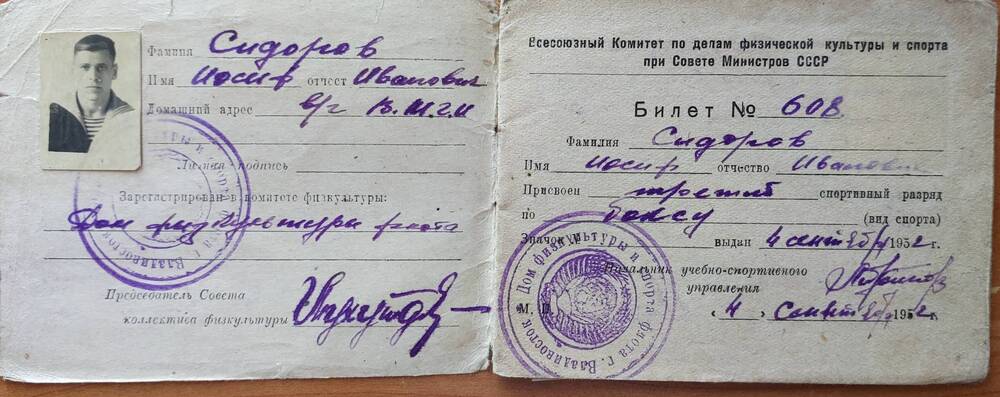 Фамилия Сидоров
Имя Иосиф отчест Иванович
Домашний адрес в/г
Личная подпись
Зарегистрирован в комитете физкультуры:
Дом физкультуры флота
Председатель Совета
коллектива физкультуры
Всесоюзный Комитет по делам физической культуры и спорта
при Совете Министров СССР
Билет № 608
Фамилия Сидоров
Имя Иосиф отчество Иванович
Присвоен третий спортивный разряд
по боксу (вид спорта)
Значок выдан 4 сентября 1952 г.
Начальник учебно-спортивного
управления
М. П. „4„ сентября 1952 г.
Дом физкультуры и спорта флота г. Владивосток